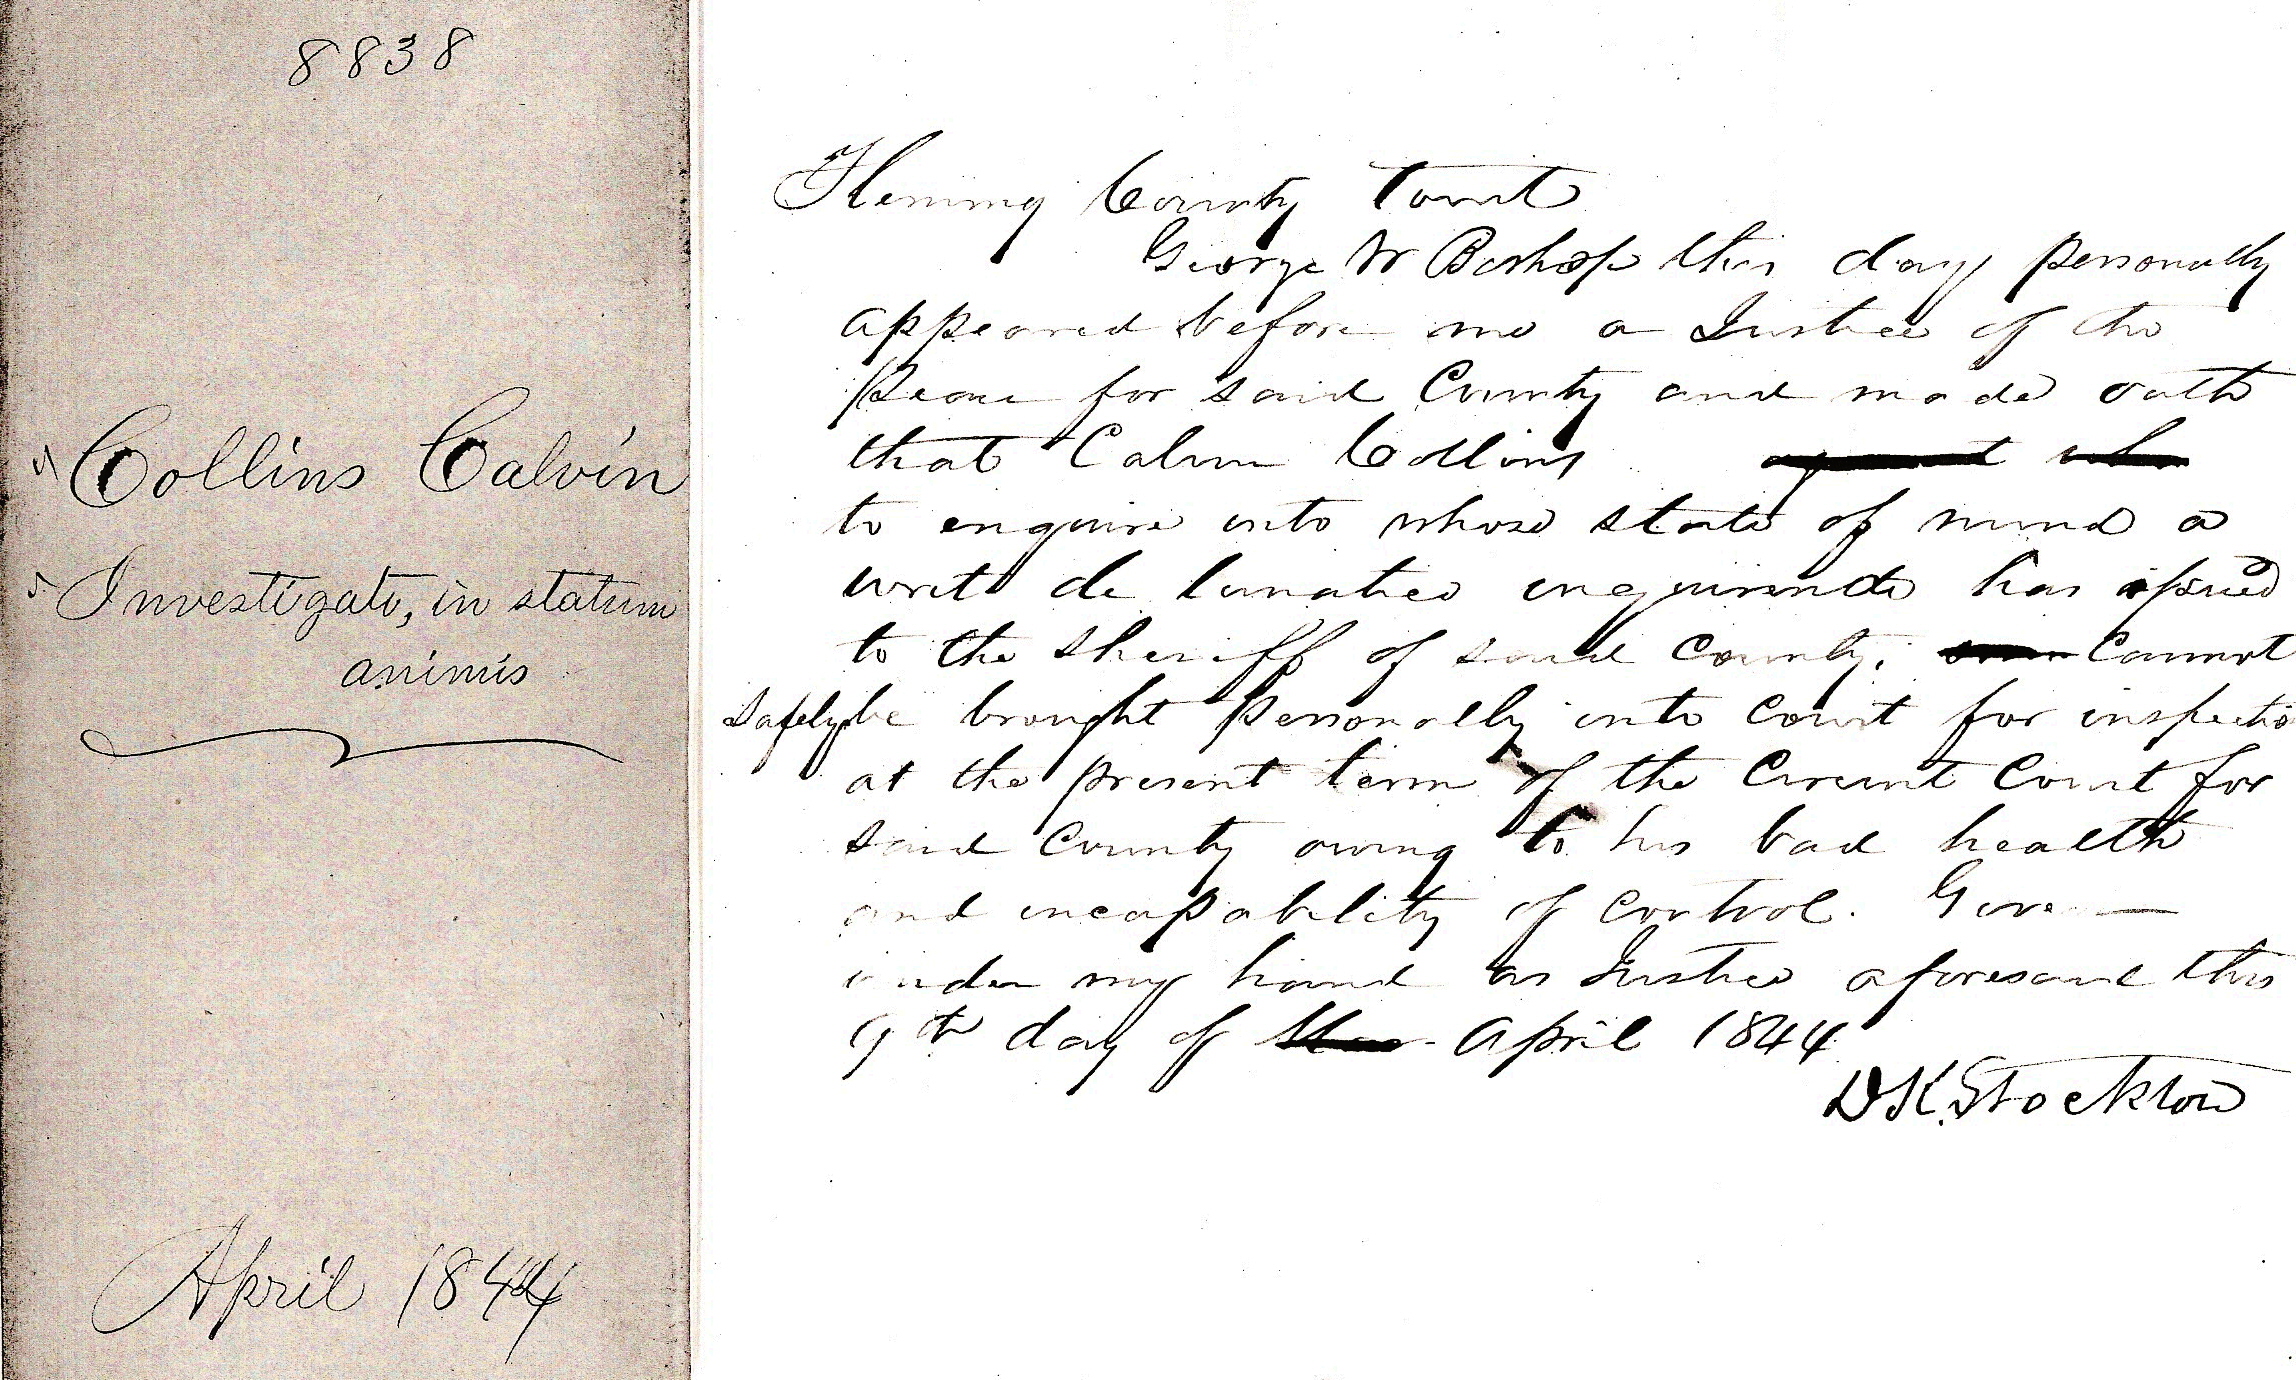 8838
Collins Calvin
Investigate, in statum
animis
April 1844
Fleming County Court
George W Bishop this day personally
appeared before me a Justice of the
Peace for said County and made oath
that Calvin Collins
to enquire into whose state of mind a
writ de lunatico enquirendo has issued
to the sheriff of said County, Cannot
Safely be brought personally into Court for inspectio
at the present term of the Circuit Court for
said County owing to his bad health
and incapability of control. Given
under my hand as Justice aforesaid this
9th day of April 1844
D K. Stockton